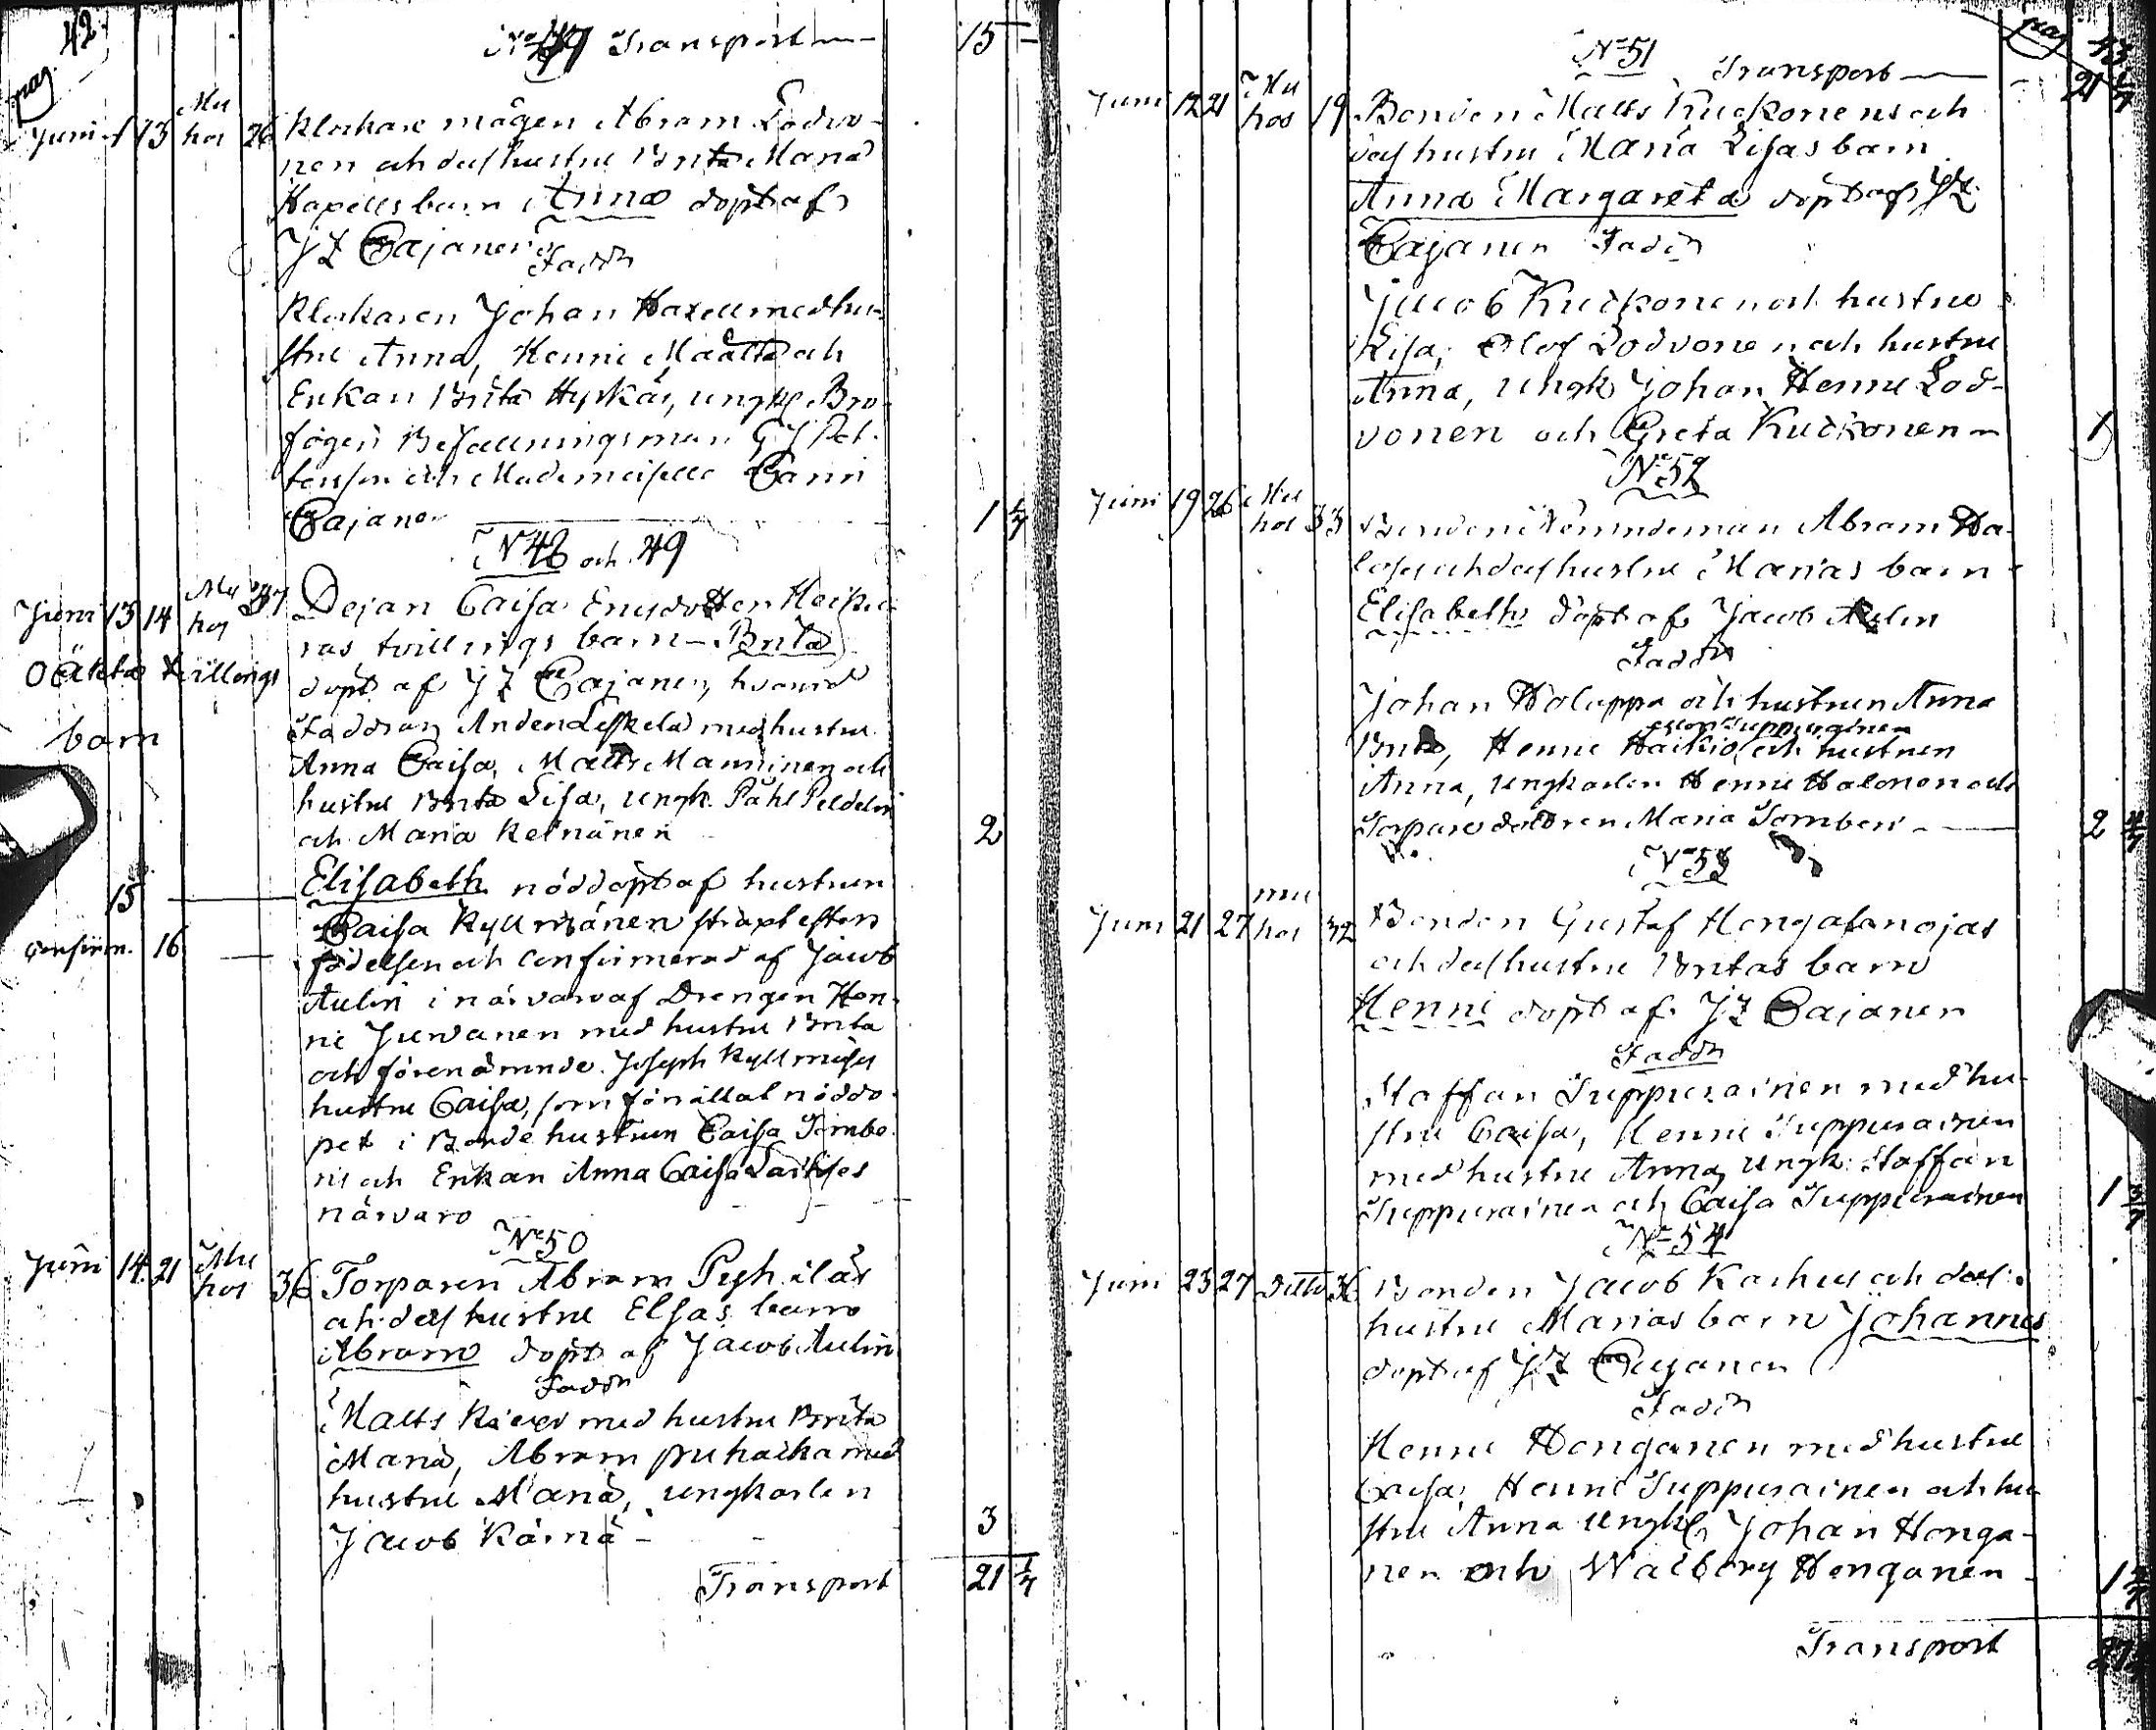 pag. 42
Transport 15
Juni 1 13 Mu hos 26 Klockare mågen Abram Lodvo-
nen och dess hustru Brita Maria
Haxells barn Anna döpt af
JZ Cajaner
Faddr
Klockaren Johan Haxell med hu-
stru Anna, Henric Määttä och
Enkan Brita Hyrkäs, ungk. Bro-
fogen Befallningsman G J Pet-
tersson och Mademoiselle Carin
Cajaner 1
N 48 och 49
Juni 13 14 Mu hos 27 Dejan Caisa Ersdotter Heikki-
ras tvillings barn Brita
Oäkta tvillings
döpt af JZ Cajaner, hvarvid
Faddrar Anders Leskelä med hustru
barn
Anna Caisa, Matts Manninen och
hustru Brita Lisa, ungk. Påhl
och Maria Keinänen 2
15 Elisabeth nöddöpt af hustrun
Caisa Kyllmänen straxt efter
Confirm. 16 födelsen och confirmerad af Jacob
Aulin i närvaro af Drengen Hen-
ric Juvanen med hustru Brita
och förenämnde Joseph Kyll
hustru Caisa, som förrättat nöddo-
pet i Bonde hustrun Caisa Tornbe
ris och Enkan Anna Caisa
närvaro
No 50
Juni 14 21 Mu hos 36 Torparen Abram Pyh äläs
och dess hustru Elsas barn
Abram döpt af Jacob Aulin
Faddr
Matts med hustru Brita
Maria, Abram Puhakka med
hustru Maria, ungkarlen
Jacob Kärnä 3
Transport 21 1/4
pag 43
No 51
Transport 21
Juni 12 21 Mu hos 19 Bonden Matts Kuckonens och
dess hustru Maria Lisas barn
Anna Margareta döpt af JZ
Cajaner Faddr
Jacob Kuckonen och hustru
Lisa, Olof Lodvonen och hustru
Anna, ungk Johan Henric Lod-
vonen och Greta Kuckonen 1
No 52
Juni 19 26 Mu hos 33 Bonden Nämndeman Abram Ha-
och dess hustru Marias barn
Elisabeth döpt af Jacob Aulin
Faddr
Johan Holappa och hustrun Anna
eller Suppurainen
Brita, Henric Haikio, och hustrun
Anna, ungkarlen Henric Halonen och
Torpare dottren Maria Tornberi 2
No 53
Juni 21 27 mu hos 32 Bonden Gustaf Hongalanojas
och dess hustru Britas barn
Henric döpt af JZ Cajaner
Faddr
Staffan Suppurainen med hu-
stru Caisa, Henric Suppurainen
med hustru Anna, ungk. Staffan
Suppurainen och Caisa Suppurainen 1
No 54
Juni 23 27 Ditto 36 Bonden Jacob Karhus och dess
hustru Marias barn Johannes
döpt af JZ Cajaner
Faddr
Henric Honganen med hustru
Caisa, Henric Suppurainen och hu-
stru Anna ungk Johan Honga-
nen och Walborg Honganen 1
Transport